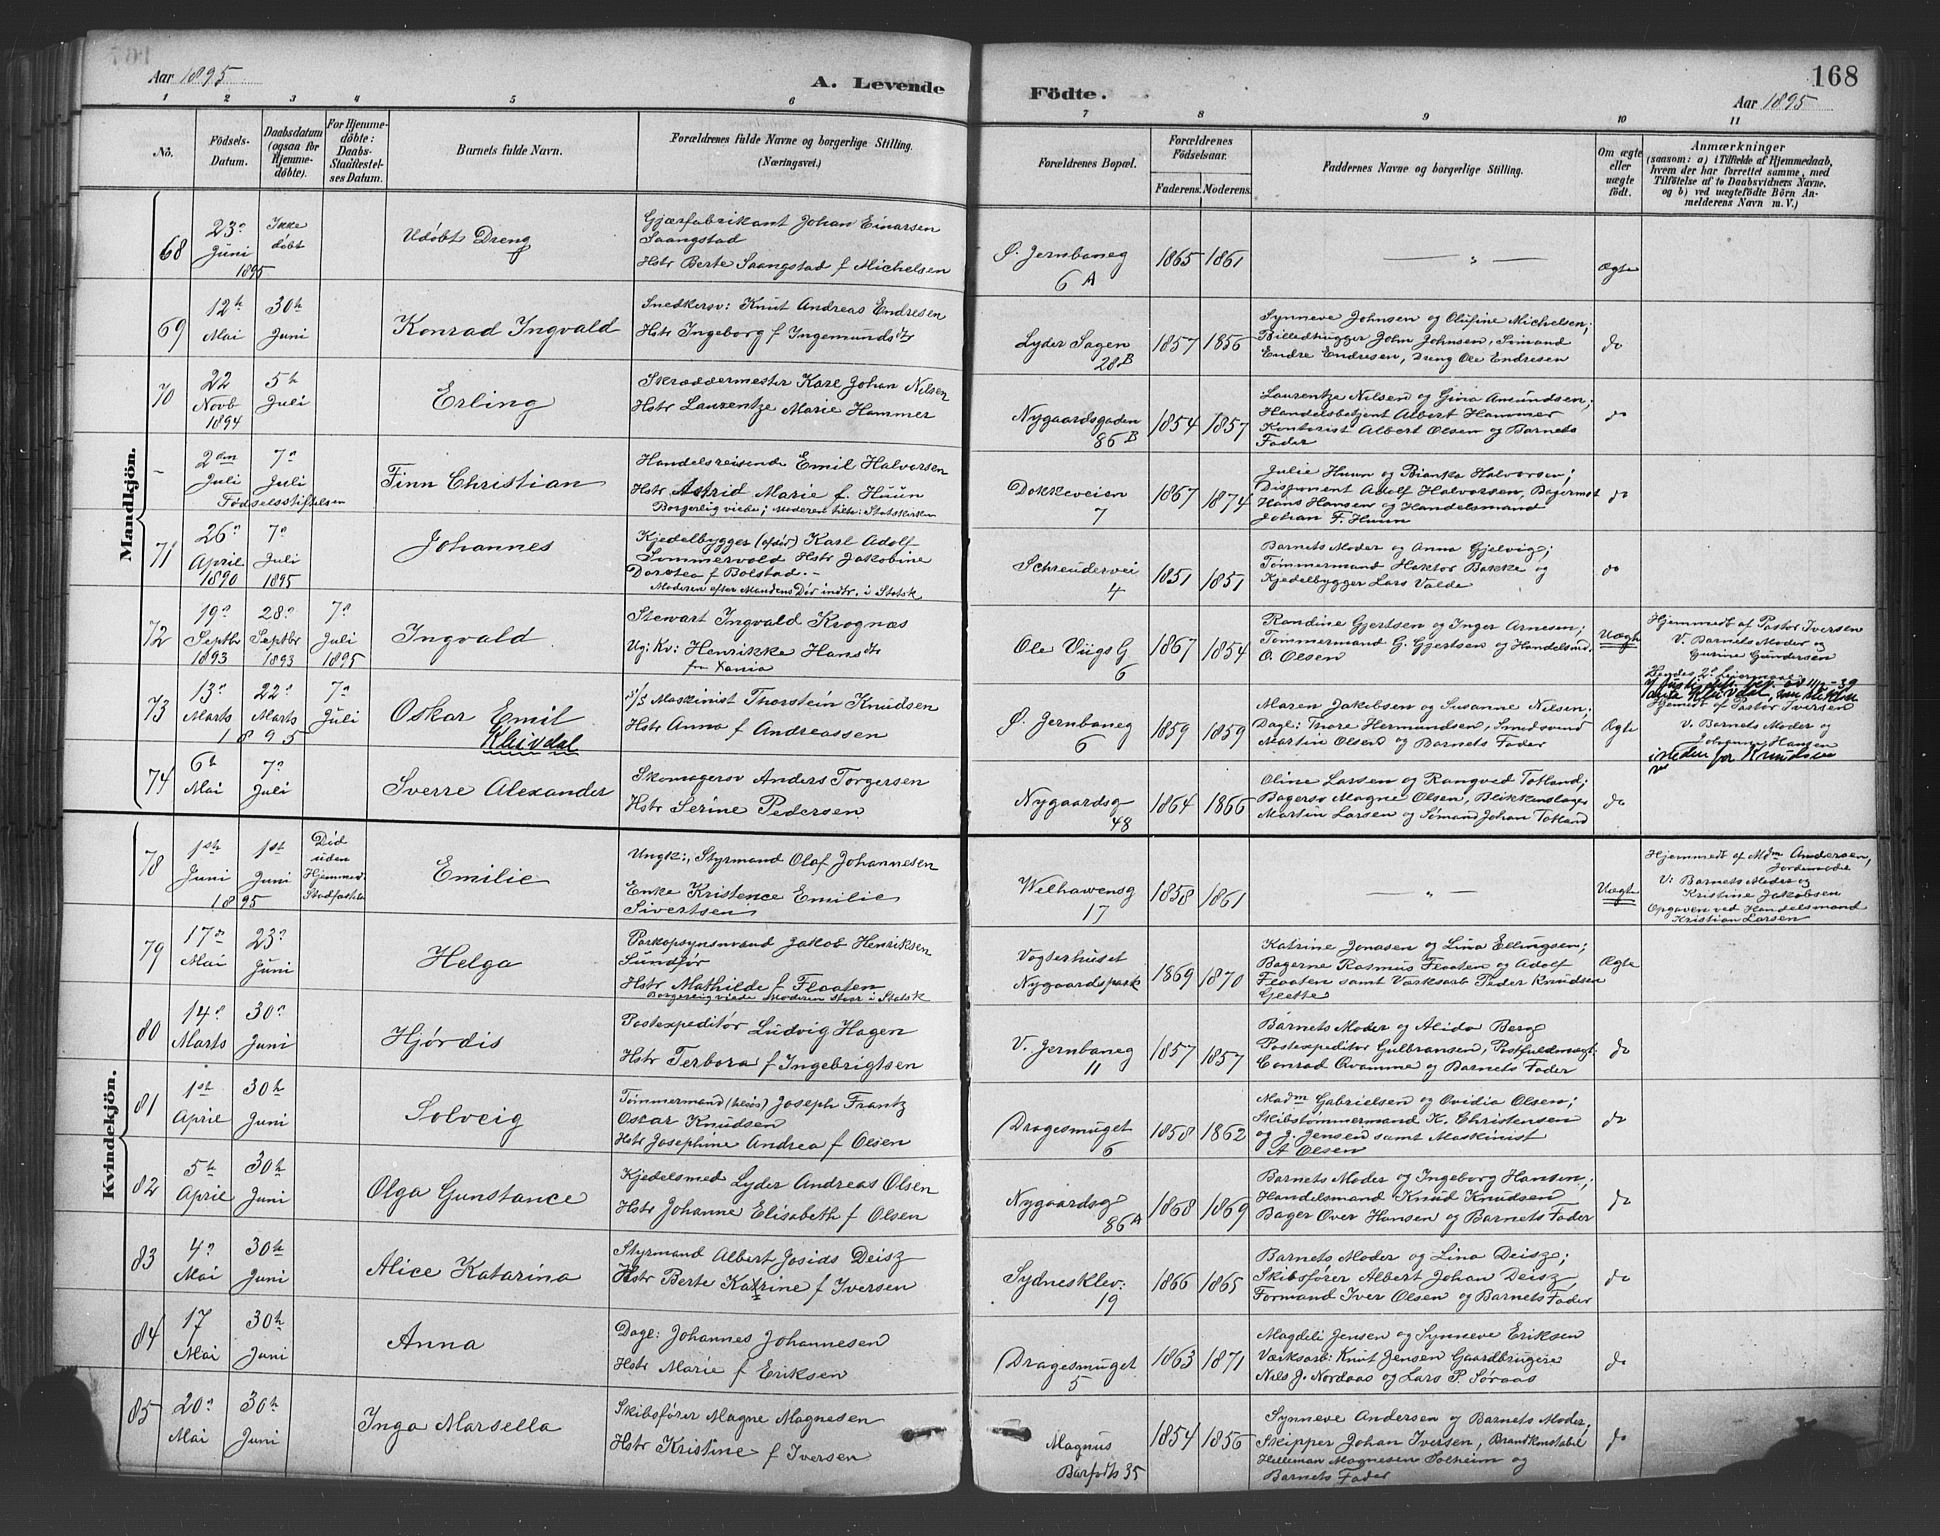 168
Aar 1895
A. Levende
Födte.
Aar 1895
1 2 3 4 5 6 7 8 9 10 11
No.
Födsels-
Datum.
Daabsdatum
(ogsaa for
Hjemme-
döbte).
For Hjemme-
döbte:
Daabs-
Stadfæstel-
ses Datum.
Barnets fulde Navn.
Forældrenes fulde Navne og borgerlige Stilling.
(Næringsvei.)
Forældrenes Bopæl.
Forældrenes
Födselsaar.
Faderens. Moderens.
Faddernes Navne og borgerlige Stilling.
Om ægte
eller
uægte
födt.
Anmærkninger
(saasom: a) i Tilfælde af Hjemmedaab,
hvem der har forrettet samme, med
Tilföielse af to Daabsvidners Navne,
og b) ved uægtefödte Börn An-
melderens Navn m. V.)
Mandkjön.
68
23de
Juni
1895
Ikke
døbt
Udøbt Dreng
Gjærfabrikant Johan Einarsen
Saangstad
Hstr Berte Saangstad f Michelsen
Ø. Jernbaneg
6 A
1865 1861
— " —
Ægte
69
12te
Mai
30te
Juni
Konrad Ingvald
Snedkersv: Knut Andreas Endresen
Hstr Ingeborg f Ingemundsdtr
Lyder Sagen
28B
1857 1856
Synneve Johnsen og Olufine Michelsen;
Billedhugger John Johnsen, Sömand
Endre Endresen, Dreng Ole Endresen
do
70
22
Novb
1894
5te
Juli
Erling
Skræddermester Karl Johan Nilsen
Hstr Laurentze Marie Hammer
Nygaardsgaden
86B
1854 1857
Laurentze Nilsen og Gina Amundsen;
Handelsbetjent Albert Hammer
Kontorist Albert Olsen og Barnets
Fader
do
-
2den
Juli
7de
Juli
Fødselsstiftelsen
Finn Christian
Handelsreisende Emil Halvorsen
Hstr Astrid Marie f. Huun
Borgerlig viede; Moderen tilh: Statskirken
Dokkeveien
7
1867 1874
Julie Huun og Bianka Halvorsen;
Disponent Adolf Halvorsen, Bagermst
Hans Hansen og Handelsmand
Johan F. Huun
do
71
26de
April
1890
7de
Juli
1895
Johannes
Kjedelbygger (afdör) Karl Adolf
Sommervold Hstr Jakobine
Dorotea f Bolstad. -
Moderen efter Mandens Död indtr. i Statsk
Schreudervei
4
1851 1851
Barnets Moder og Anna Gjelvig;
Tømmermand Haktor Bakke og
Kjedelbygger Lars Valde
do
72
19de
Septbr
1893
28de
Septbr
1893
7de
Juli
1895
Ingvald
Stewart Ingvald Krognæs
Ug: Kv: Henrikke Hansdtr
fra Xania
Ole Vuigs G
6
1867 1854
Randine Gjertsen og Inger Arnesen;
Tømmermand G. Gjertsen og Handelsmd
O. Olsen
Uægte
Hjemmedt af Pastor Iversen
V. Barnets Moder og
Gurine Gundersen
73
13de
Marts
22de
Marts
1895
7de
Juli
Oskar Emil
Kleivdal
S/S Maskinist Thorstein Knudsen
Hstr Anna f Andreassen
Ø. Jernbaneg
6
1859 1859
Maren Jakobsen og Susanne Nilsen;
Dagl: Thore Hermundsen, Smedsvend
Martin Olsen og Barnets Fader
Ægte
Hjemdt af Pastor Iversen
V. Barnets Moder og
Johanne Hansen
isteden for Knudsen
74
6te
Mai
7de
Juli
Sverre Alexander
Skomagersv Anders Torgersen
Hstr Serine Pedersen
Nygaardsg
48
1864 1866
Oline Larsen og Rangved Totland;
Bagersv Magne Olsen, Blikkenslager
Martin Larsen og Sömand Johan Totland
do
Kvindekjön.
78
1ste
Juni
1ste
Juni
1895
Død
uden
Hjemmed
Stadfæstelse
Emilie
Ungk:, Styrmand Olaf Johannesen
Enke Kristence Emilie
Sivertsen
Welhavensg
17
1858 1861
— " —
Uægte
Hjemmedt af Mdm Andersen,
Jordemoder
V: Barnets Moder og
Kristine Jakobsen
Opgaven ved Handelsmand
Kristian Larsen
79
17de
Mai
23de
Juni
Helga
Parkopsynsmand Jakob Henriksen
Sundför
Hstr Mathilde f Flaaten
Borgerlig viede Moderen staar i Statsk
Vogterhuset
Nygaardspark
1869 1870
Katrine Jonasen og Lina Ellingsen;
Bagerne Rasmus Flaaten og Adolf
Flaaten samt Værksarb Peder Knudsen
Glette
Ægte
80
14de
Marts
30te
Juni
Hjørdis
Postexpeditør Ludvig Hagen
Hstr Terbora f Ingebrigtsen
V. Jernbaneg
11
1857 1857
Barnets Moder og Alida Berg
Postexpeditør Gulbransen, Postfuldmægt
Conrad Qvamme og Barnets Fader
do
81
1ste
April
30te
Juni
Solveig
Tømmermand Joseph Frantz
Oscar Knudsen
Hstr Josephine Andrea f Olsen
Dragesmuget
6
1858 1862
Madm Gabrielsen og Ovidia Olsen;
Skibstømmermand K. Christensen
og J. Jensen samt Maskinist
A Olsen
do
82
5te
April
30te
Juni
Olga Gunstance
Kjedelsmed Lyder Andreas Olsen
Hstr Johanne Elisabeth f Olsen
Nygaardsg
86A
1868 1869
Barnets Moder og Ingeborg Hansen;
Handelsmand Knud Knudsen
Bager Over Hansen og Barnets Fader
do
83
4de
Mai
30te
Juni
Alice Katarina
Styrmand Albert Josias Deisz
Hstr Berte Katrine f Iversen
Sydnesklev:
19
1866 1865
Barnets Moder og Lina Deisz;
Skibsfører Albert Johan Deisz,
Formand Iver Olsen og Barnets Fader
do
84
17
Mai
30te
Juni
Anna
Dagl: Johannes Johannesen
Hstr Marie f Eriksen
Dragesmuget
5
1863 1871
Magdeli Jensen og Synneve Eriksen
Værksarb: Knut Jensen Gaardbrugere
Nils J. Nordaas og Lars P. Søraas
do
85
20de
Mai
30te
Juni
Inga Marsella
Skibsfører Magne Magnesen
Hstr Kristine f Iversen
Magnus
Barfodts 35
1854 1856
Synneve Andersen og Barnets Moder;
Skipper Johan Iversen, Brandkonstabel
Helleman Magnesen Solheim og
Barnets Fader
do